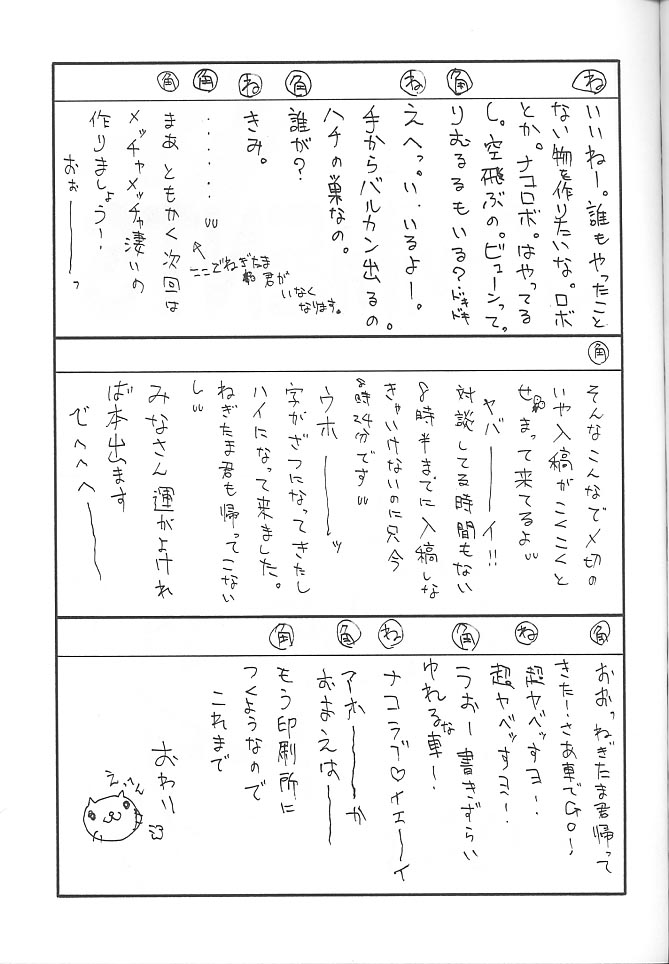 ね
いいねー。誰もやったこと
ない物を作りたいな。ロボ
とか。ナコロボ。はやってる
し。空飛ぶの。ビューンって。
角
りむるるもいる?ドキドキ
ね
えへっ。い、いるよー。
手からバルカン出るの。
ハチの巣なの。
角
誰が?
ね
きみ。
角
・・・・・・
ここでねぎたま
君が
いなく
なります。
角
まあ ともかく次回は
メッチャメッチャ凄いの
作りましょう!
おぉーーーっ
角
そんなこんなで〆切の
いや入稿がこくこくと
せまって来てるよ
ヤバーーーイ!!
対談してる時間もない
8時半までに入稿しな
きゃいけないのに只今
8時24分です
ウホーーーッ
字がざつになってきたし
ハイになって来ました。
ねぎたま君も帰ってこない
し
みなさん 運がよけれ
ば本出ます
でへへへーーー
角
おおっねぎたま君帰って
きたー!さあ車でGO!
ね
超ヤベッすヨ!
超ヤベッすヨ!
角
うおー 書きずらい
ゆれるな車ー!
ね
ナコラブ♡イェーイ
角
アホーーーか
おまえはーー
角
もう印刷所に
つくようなので
これまで
おわり
えってん